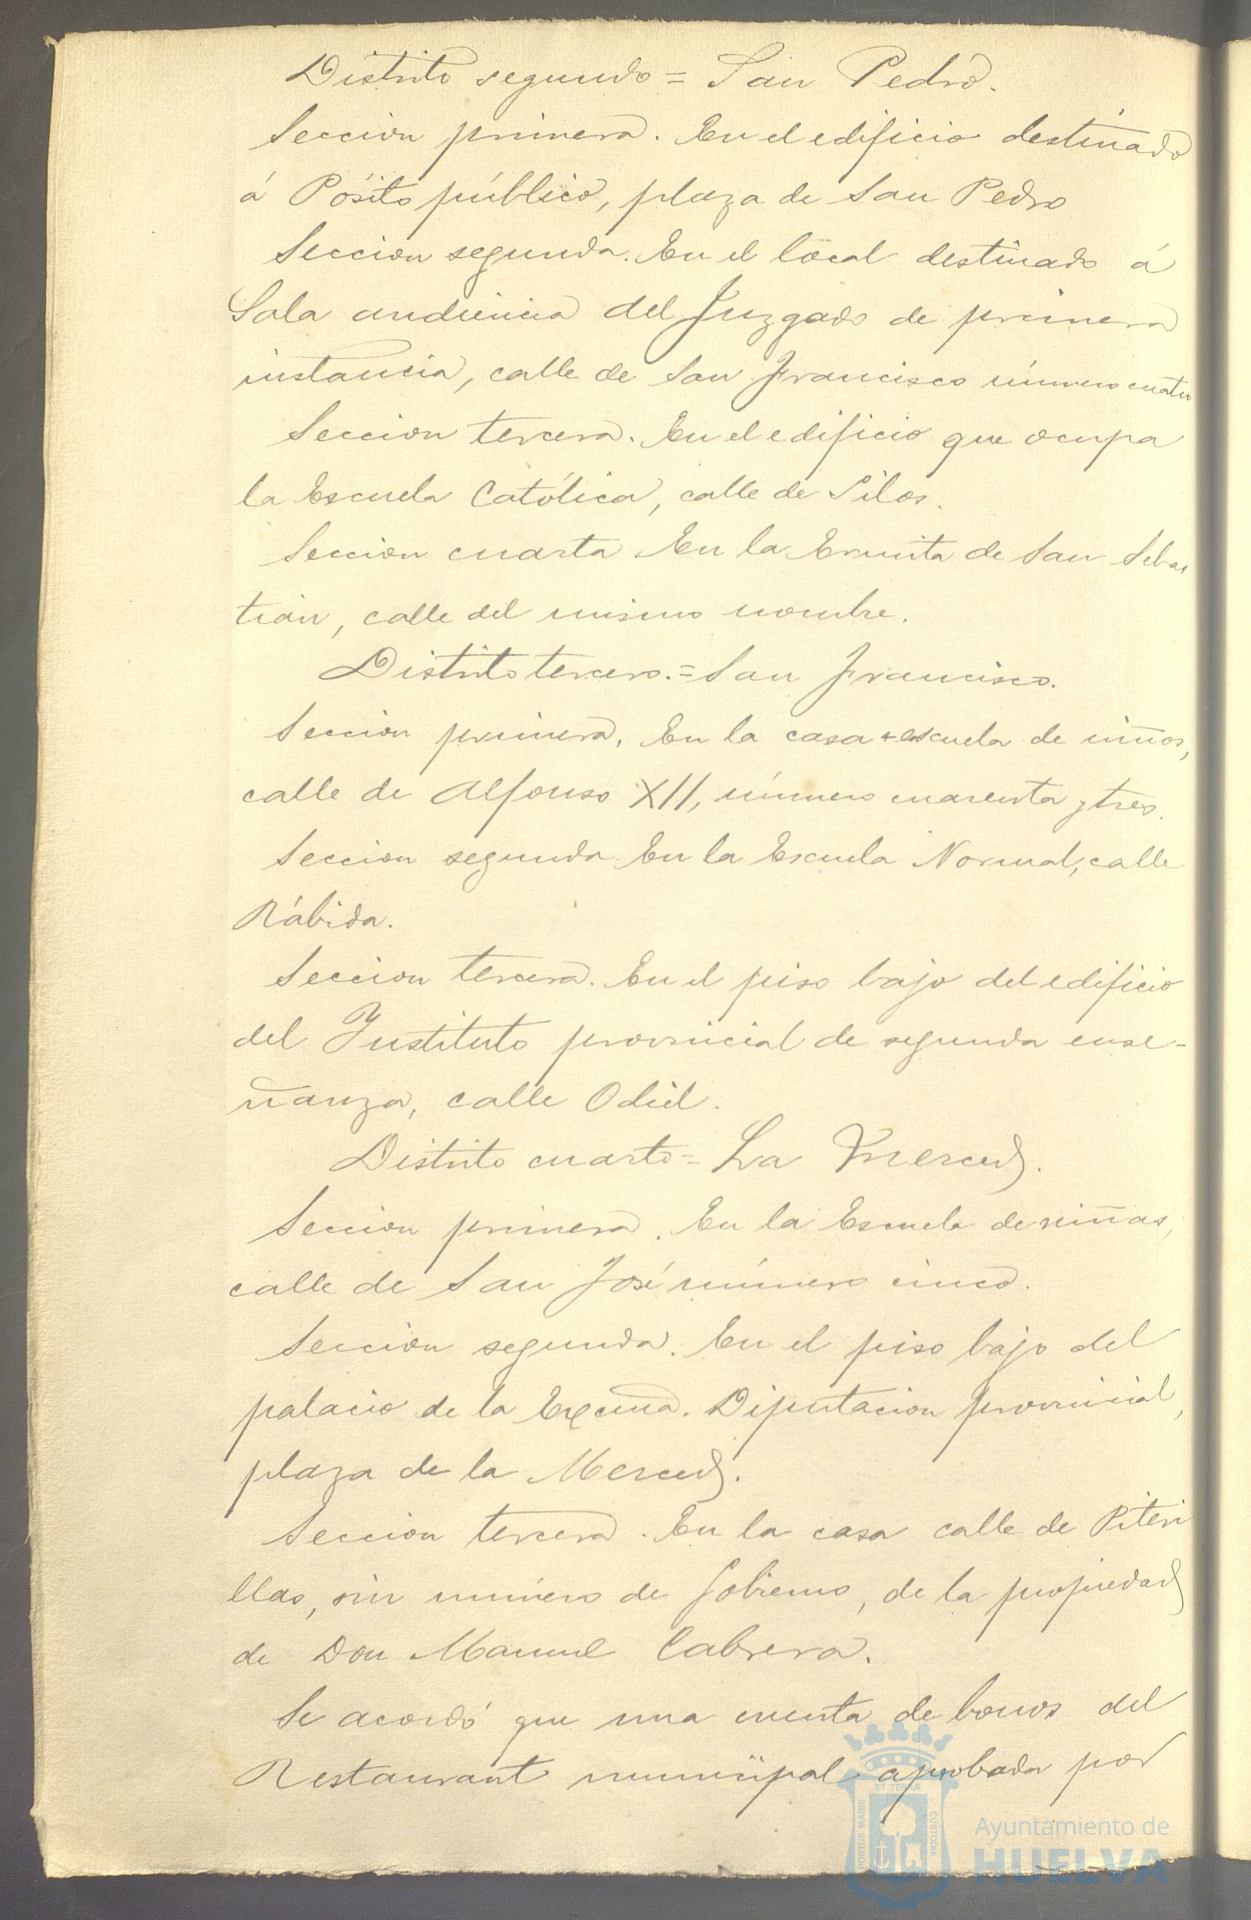 Distrito segundo = San Pedro.
Seccion primera. En el edificio destinado
á Pósito público, plaza de San Pedro
Seccion segunda. En el local destinado á
Sala audiencia del Juzgado de primera
instancia, calle de San Francisco número cuatro
Seccion tercera. En el edificio que ocupa
la Escuela Católica, calle de Silos.
Seccion cuarta En la Ermita de San Sebas
tián, calle del mismo nombre.
Distrito tercero. = San Francisco.
Seccion primera, En la casa escuela de niños,
calle de Alfonso XII, número cuarenta y tres.
Seccion segunda. En la Escuela Normal, calle
Rábida.
Seccion tercera. En el piso bajo del edificio
del Instituto provincial de segunda ense-
ñanza, calle Odiel.
Distrito cuarto = La Merced.
Seccion primera. En la Escuela de niñas,
calle de San José número cinco.
Seccion segunda. En el piso bajo del
palacio de la Excma. Diputacion provincial,
plaza de la Merced.
Seccion tercera. En la casa calle de Piteri
llas, sin número de Gobierno, de la propiedad
de Don Manuel Cabrera.
Se acordó que una cuenta de bonos del
Restaurant municipal aprobada por
PORTUS MARIS ET TERRÆ CUSTODIA
Ayuntamiento de
HUELVA